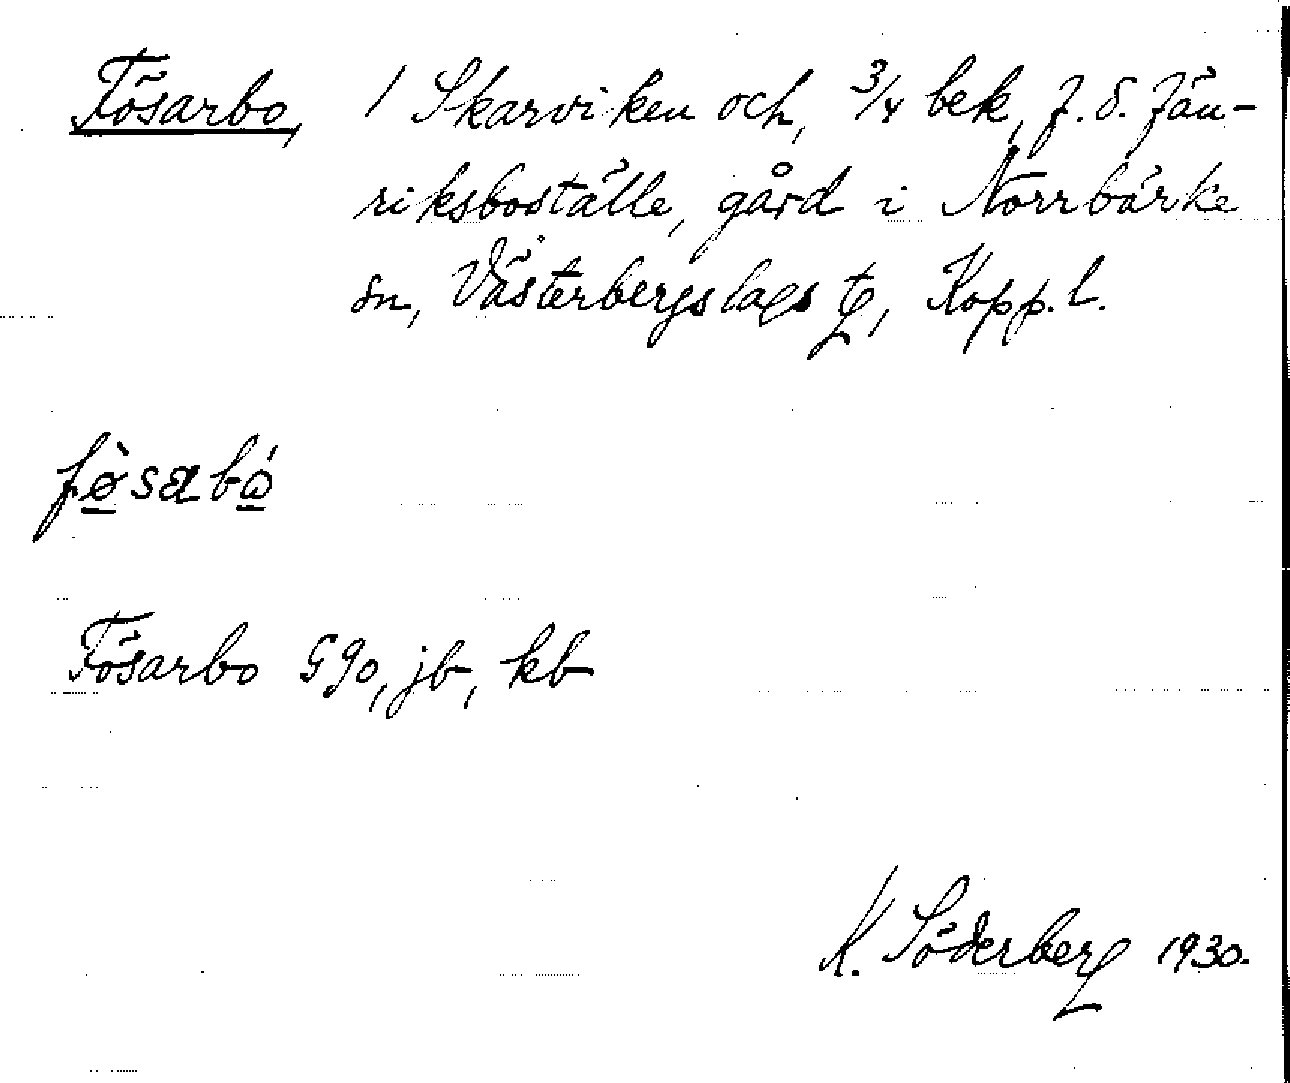 Fösarbo, 1 Skarviken och, 3/4 bek, f. d. Fän-
riksboställe, gård i Norrbärke
sn, Västerbergslags tg, Kopp. l.
fø̀sabó
Fösarbo G 90, jb, kb
K. Söderberg 1930.